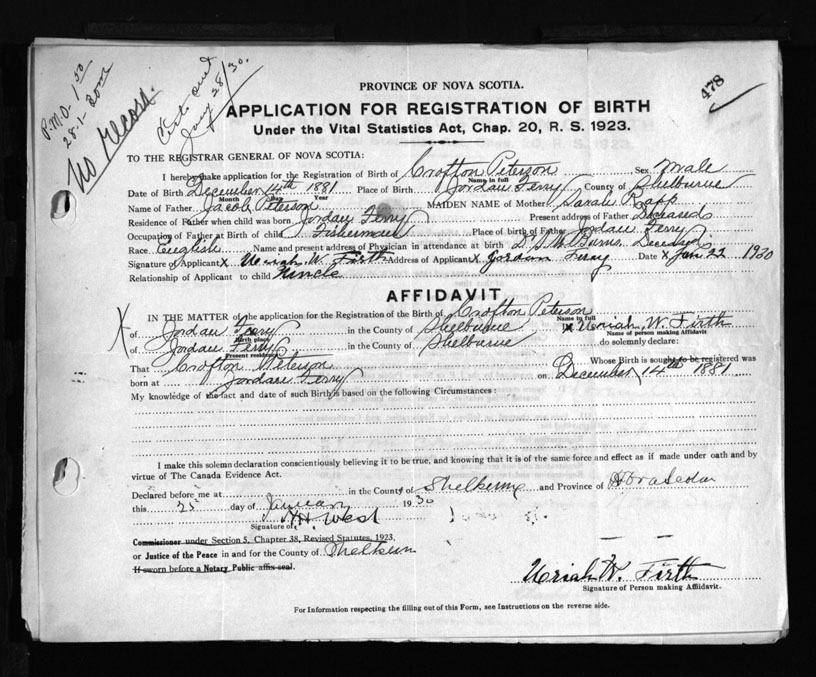 P.M.O. 1 50
28-1-
No record.
Cert. out
Jany 28/30.
478
PROVINCE OF NOVA SCOTIA.
APPLICATION FOR REGISTRATION OF BIRTH
Under the Vital Statistics Act, Chap. 20, R. S. 1923.
TO THE REGISTRAR GENERAL OF NOVA SCOTIA:
I hereby make application for the Registration of Birth of Crofton Peterson Sex Male
Name in full
Date of Birth December 14th 1881 Place of Birth Jordan Ferry County of Shelburne
Month Day Year
Name of Father Jacob Peterson MAIDEN NAME of Mother Sarah Rapp
Residence of Father when child was born Jordan Ferry Present address of Father Deceased
Occupation of Father at Birth of child Fisherman Place of birth of Father Jordan Ferry
Race English Name and present address of Physician in attendance at birth Deceased
Signature of Applicant X Uriah W. Firth Address of Applicant X Jordan Ferry Date X Jan 22 1930
Relationship of Applicant to child Uncle
AFFIDAVIT
IN THE MATTER of the application for the Registration of the Birth of Crofton Peterson
Name in full
X of Jordan Ferry in the County of Shelburne X Uriah W. Firth
Birth place Name of person making Affidavit
of Jordan Ferry in the County of Shelburne do solemnly declare:
Present residence
That Crofton Peterson Whose Birth is sought to be registered was
born at Jordan Ferry on December 14th 1881
My knowledge of the fact and date of such Birth is based on the following Circumstances:
I make this solemn declaration conscientiously believing it to be true, and knowing that it is of the same force and effect as if made under oath and by
virtue of The Canada Evidence Act.
Declared before me at in the County of Shelburne and Province of Nova Scotia
this 25 day of January 1930
Signature of H. West
Commissioner under Section 5, Chapter 38, Revised Statutes, 1923,
or Justice of the Peace in and for the County of Shelburne
If sworn before a Notary Public affix seal.
Uriah W. Firth
Signature of Person making Affidavit.
For Information respecting the filling out of this Form, see Instructions on the reverse side.